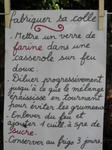 Fabriquer sa colle
Mettre un verre de
farine dans une
casserole sur feu
doux.
Diluer progressivement
jusqu'à ce que le mélange
épaississe en tournant
pour éviter les grumeaux
Enlever du feu et
ajouter 1 cuill. à spe de
sucre.
Conserver au frigo 3 jours